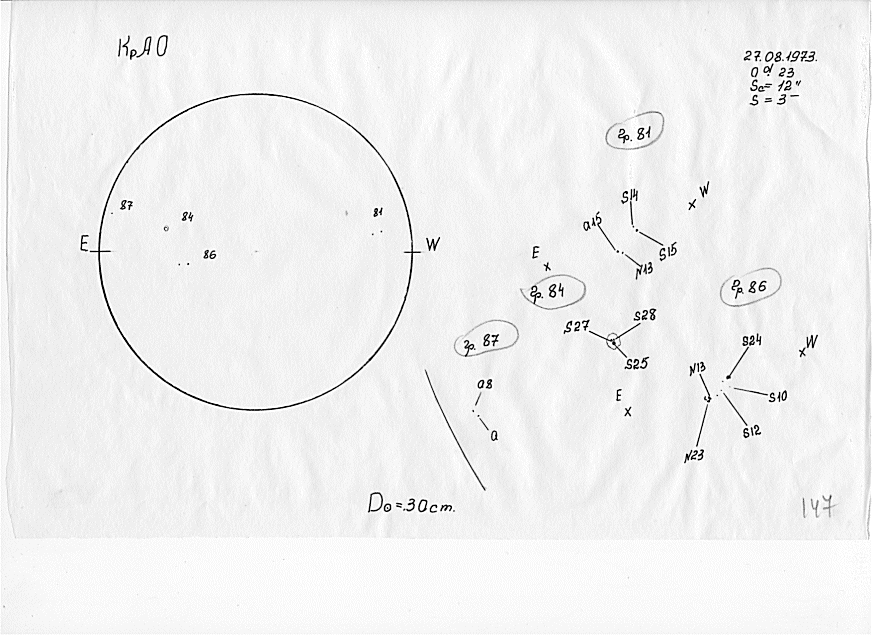 КрАО
27.08.1973.
0ᵈ.23
Sa= 12"
S = 3⁻
гр. 81
87
84
81
86
E
W
S14
W
a15
S15
N13
E
гр. 84
гр. 86
S27
S28
S25
гр. 87
a8
a
E
N13
S24
W
S10
S12
N23
D⊙=30cm.
147